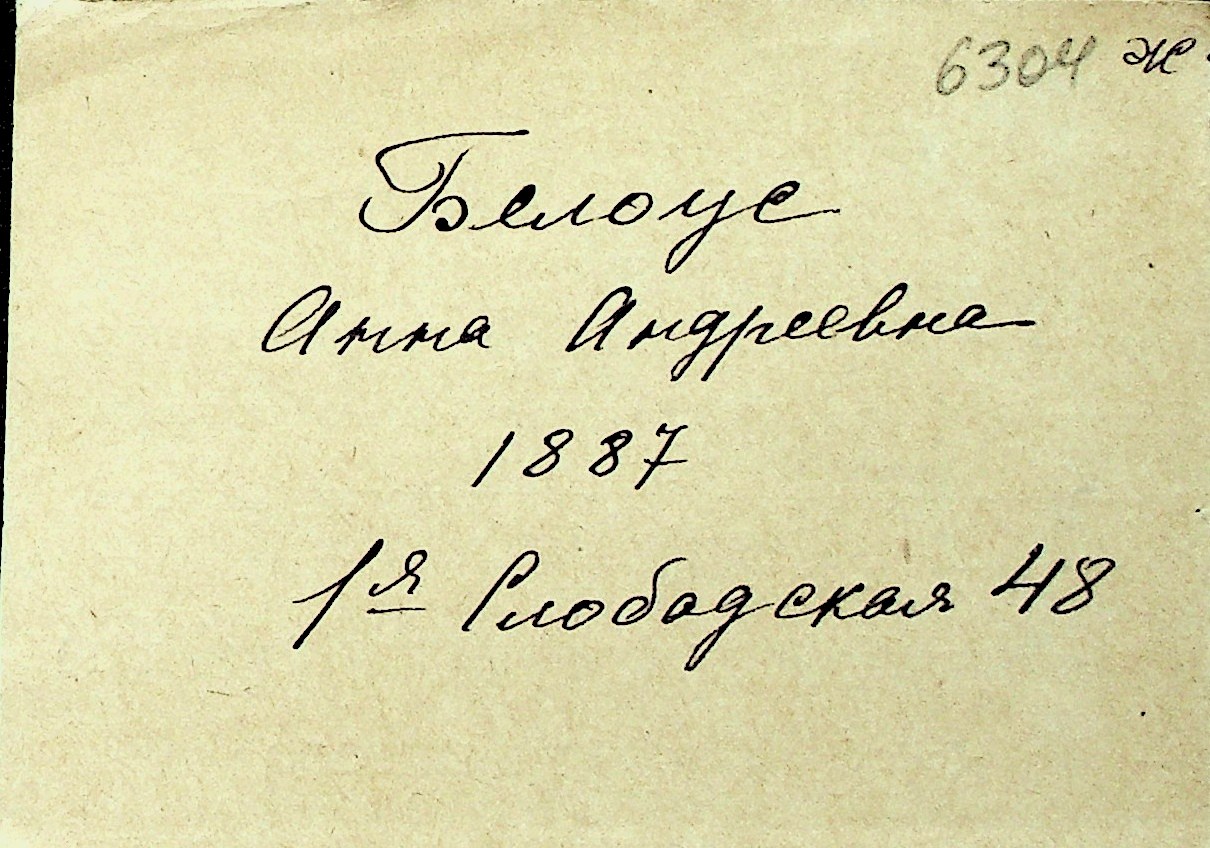 6304 ж
Белоус
Анна Андреевна
1887
1я Слободская 48